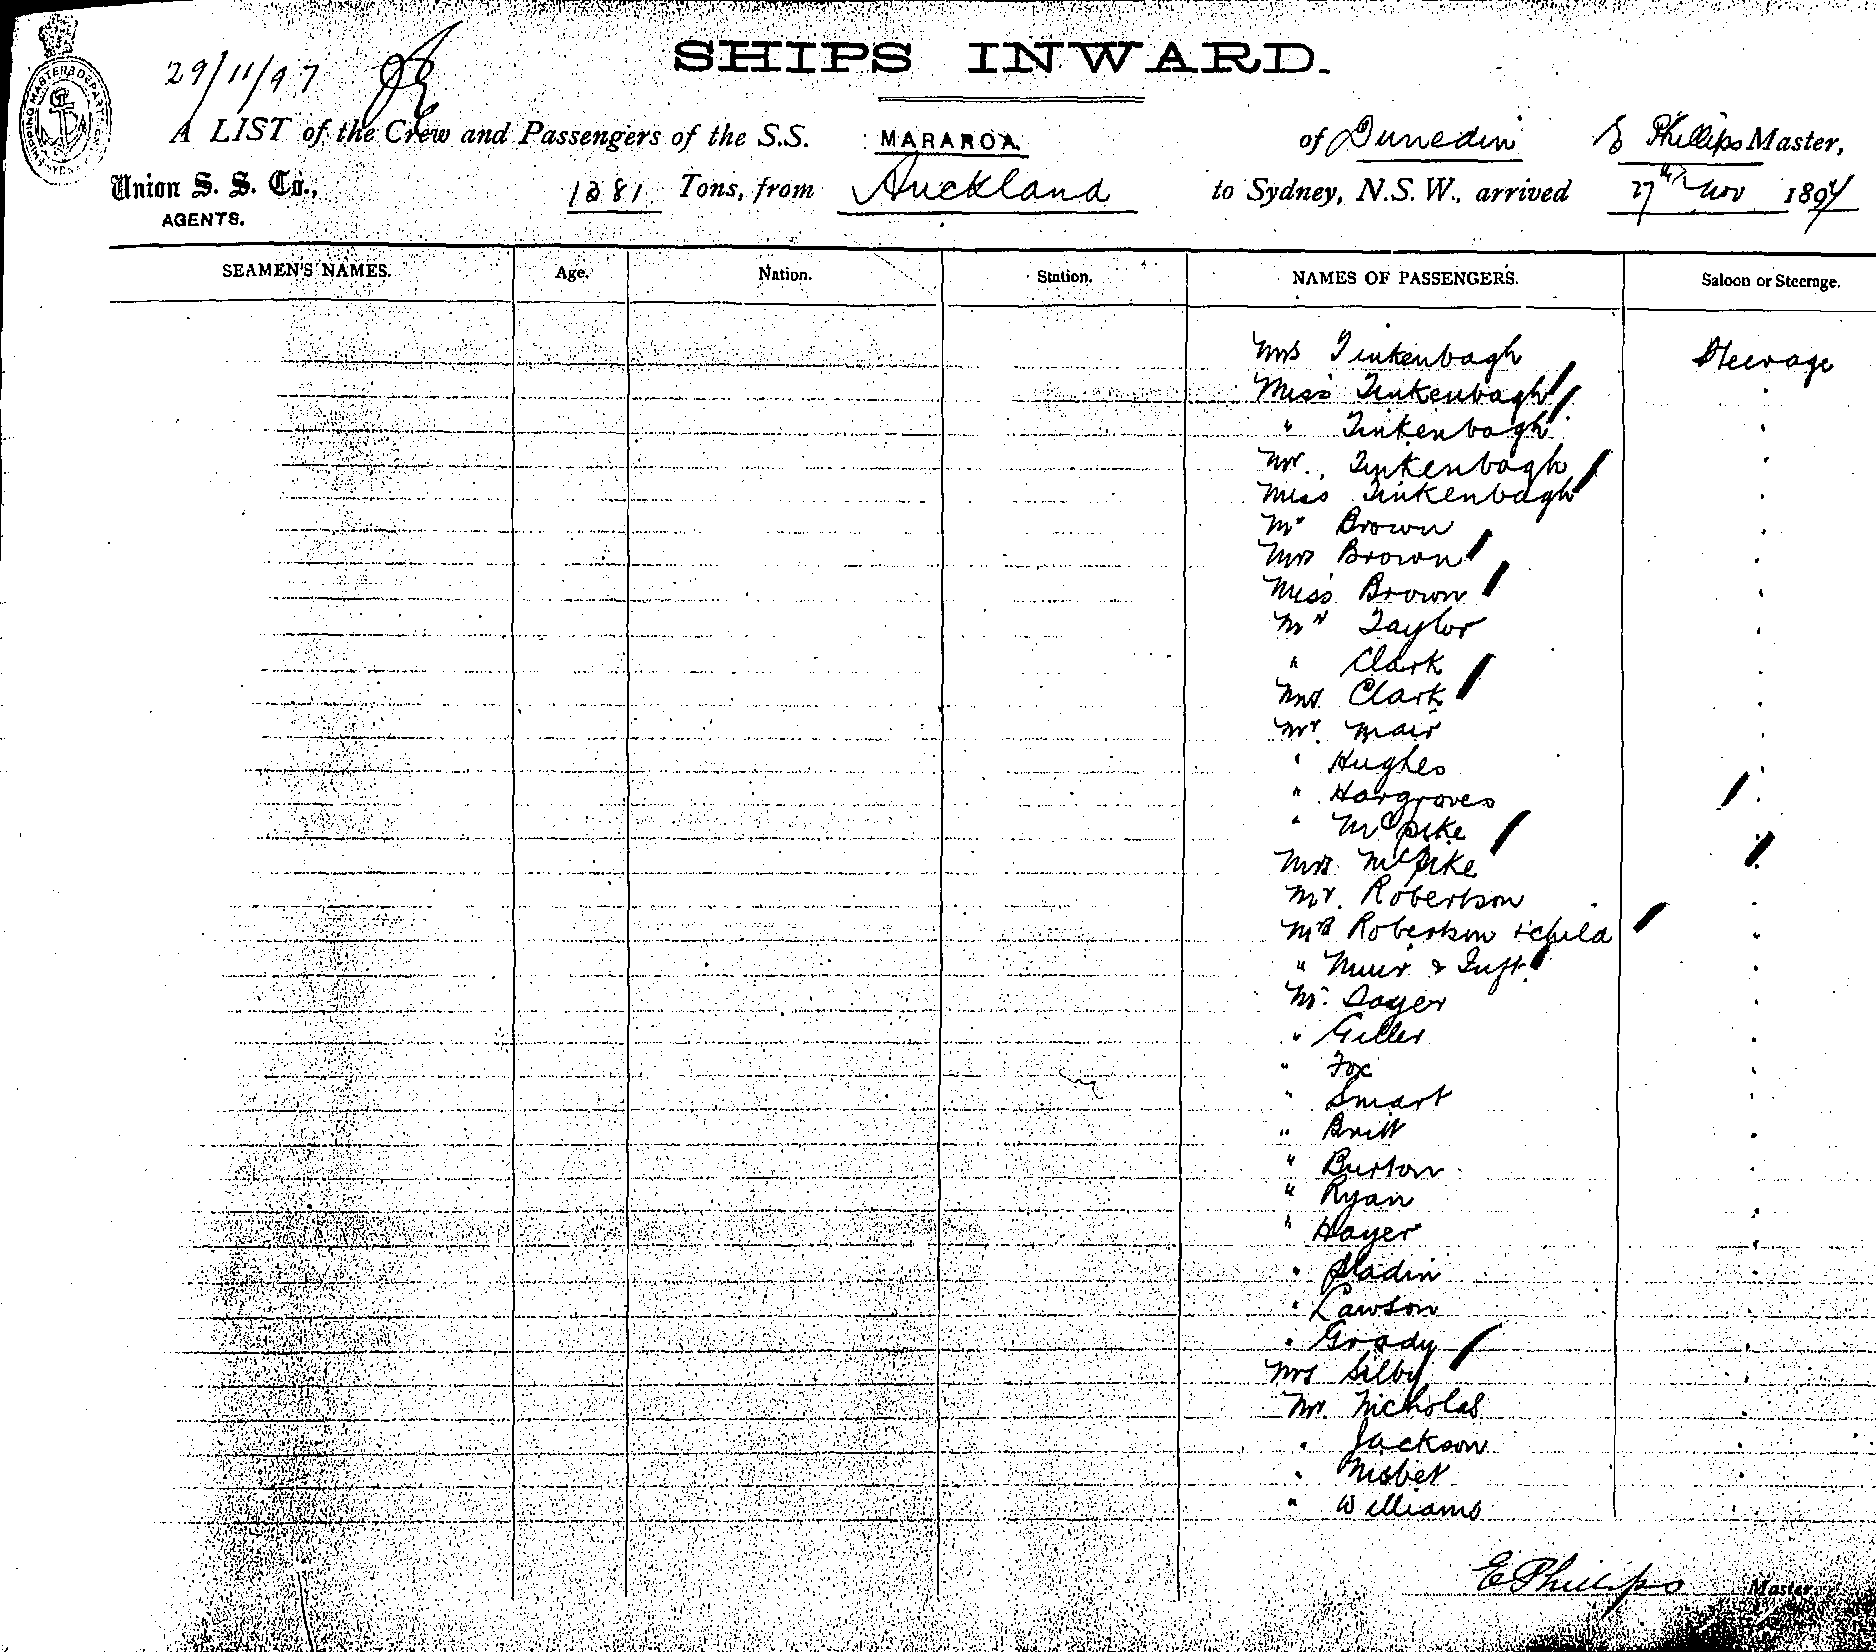 29/11/97
SHIPS INWARD.
A LIST of the Crew and Passengers of the S.S. MARAROA of Dunedin E Phillips Master,
Union S. S. Co., 1381 Tons, from Auckland to Sydney, N.S.W., arrived 27th Nov 1897
AGENTS.
SEAMEN'S NAMES. Age. Nation. Station. NAMES OF PASSENGERS. Saloon or Steerage.
Mrs Tinkenbagh Steerage
Miss Tinkenbagh
" Tinkenbagh
Mr. Tinkenbagh
Miss Tinkenbagh
Mr Brown
Mrs Brown
Miss Brown
Mr Taylor
" Clark
Mrs Clark
Mr. Mair
" Hughes
" Hargroves
" McPike
Mrs McPike
Mr. Robertson
Mrs Robertson + child
" Muir & Inft.
Mr. Sayer
" Giller
" Fox
" Smart
" Britt
" Burton
" Ryan
" Hayer
" Sladin
" Lawson
" Grady
Mrs Silby
Mr. Nicholas
" Jackson
" Nisbet
" Williams
E Phillips Master.